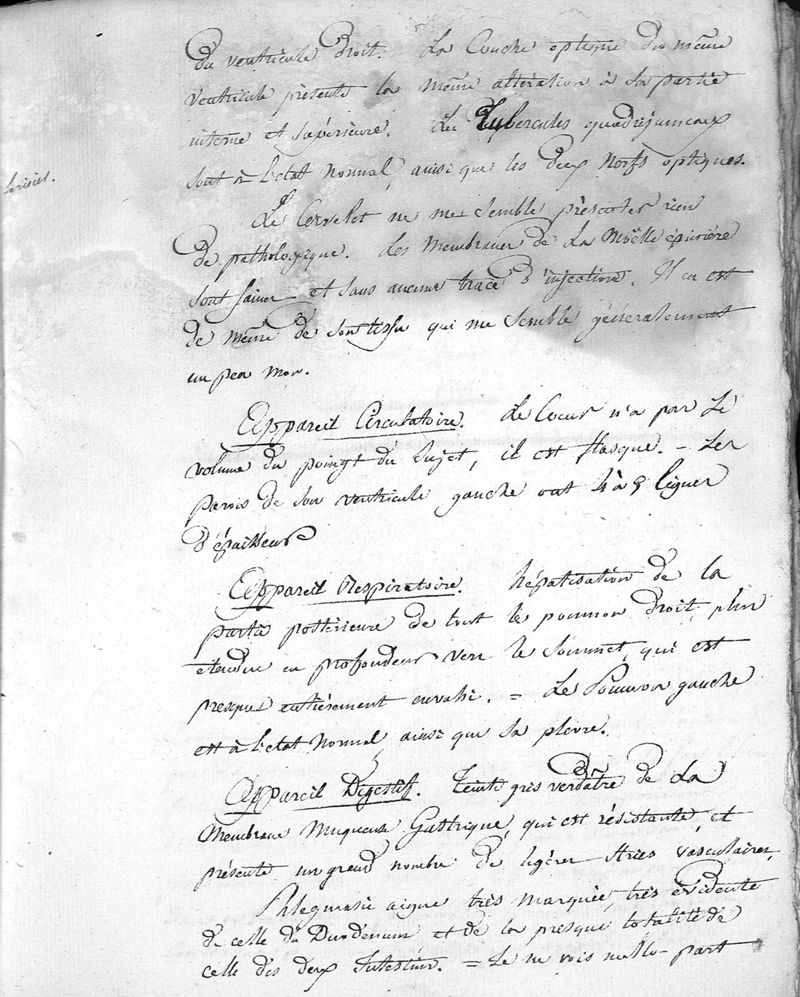 du ventricule droit. La Couche optique du même
ventricule présente la même altération à sa partie
interne et supérieure. Les Tubercules quadrijumeaux
sont à l'état normal, ainsi que les deux nerfs optiques.
Le Cervelet ne me semble présenter rien
de pathologique. Les membranes de la Moëlle épinière
sont saines et sans aucune trace d'injection. Il en est
de même de son tissu qui me semble généralement
un peu mou.
Appareil Circulatoire. Le Coeur n'a pas le
volume du poingt du sujet, il est flasque. = Les
parois de son ventricule gauche ont 4 à 5 lignes
d'épaisseur
Appareil Respiratoire. hépatisation de la
partie postérieure de tout le poumon droit, plus
étendue en profondeur vers le sommet, qui est
presque entièrement envahi. = Le Poumon gauche
est à l'état normal, ainsi que sa plèvre.
Appareil Digestif. Teinte gris verdâtre de la
Membrane Muqueuse Gastrique, qui est résistante, et
présente un grand nombre de légères stries vasculaires.
Phlegmasie aigue très marquée, très évidente
de celle du Duodénum, et de la presque totalité de
celle des deux Intestins. = Je ne vois nulle part